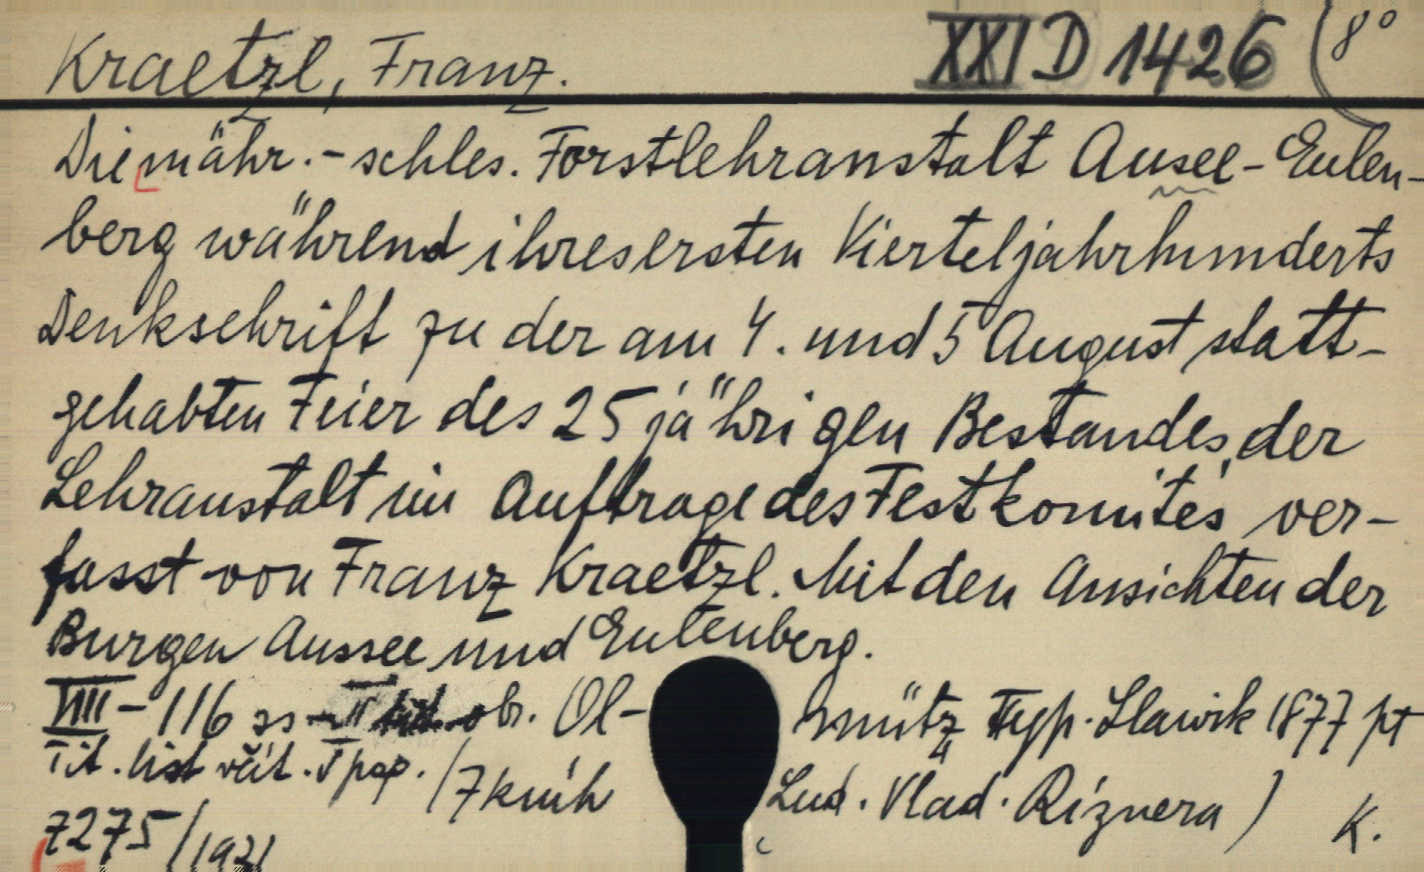 Kraetzl, Franz. XXI D 1426 (8°
Die mähr.-schles. Forstlehranstalt Ausee-Eulen-
berg während ihres ersten Vierteljahrhunderts
Denkschrift zu der am 4. und 5 August statt-
gehabten Feier des 25 jährigen Bestandes der
Lehranstalt im Auftrage des Festkomités ver-
fasst von Franz Kraetzl. Mit den Ansichten der
Burgen Aussee und Eulenberg.
VIII-116 ss - II obr. Ol- mütz Typ. Slawik 1877 pt
Tit. list I pap. (Z knih Lud. Vlad. Riznera) K.
7275/1931